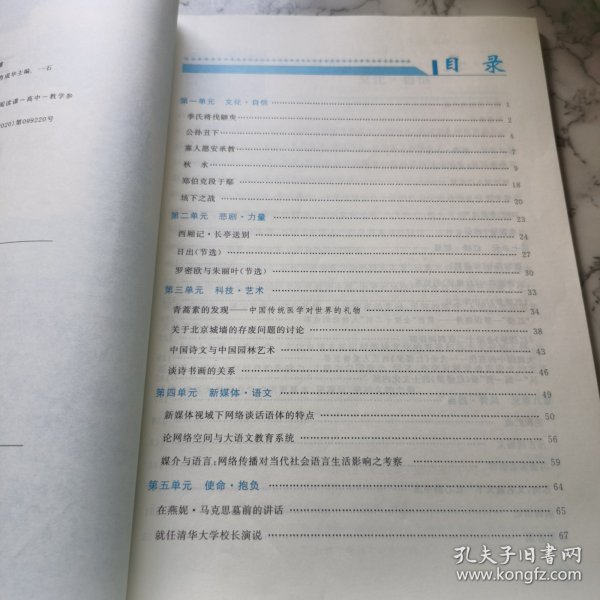 目录
第一单元 文化·自信 1
季氏将伐颛臾 2
公孙丑下 4
寡人愿安承教 7
秋 水 9
郑伯克段于鄢 18
垓下之战 20
第二单元 悲剧·力量 23
西厢记·长亭送别 24
日出(节选) 27
罗密欧与朱丽叶(节选) 30
第三单元 科技·艺术 33
青蒿素的发现——中国传统医学对世界的礼物 34
关于北京城墙的存废问题的讨论 38
中国诗文与中国园林艺术 43
谈诗书画的关系 46
第四单元 新媒体·语文 49
新媒体视域下网络谈话语体的特点 50
论网络空间与大语文教育系统 56
媒介与语言:网络传播对当代社会语言生活影响之考察 59
第五单元 使命·抱负 64
在燕妮·马克思墓前的讲话 65
就任清华大学校长演说 67
成华主编. 一石
阅读课-高中-教学参
2020)第099220号
孔夫子旧书网
www.kongfz.com